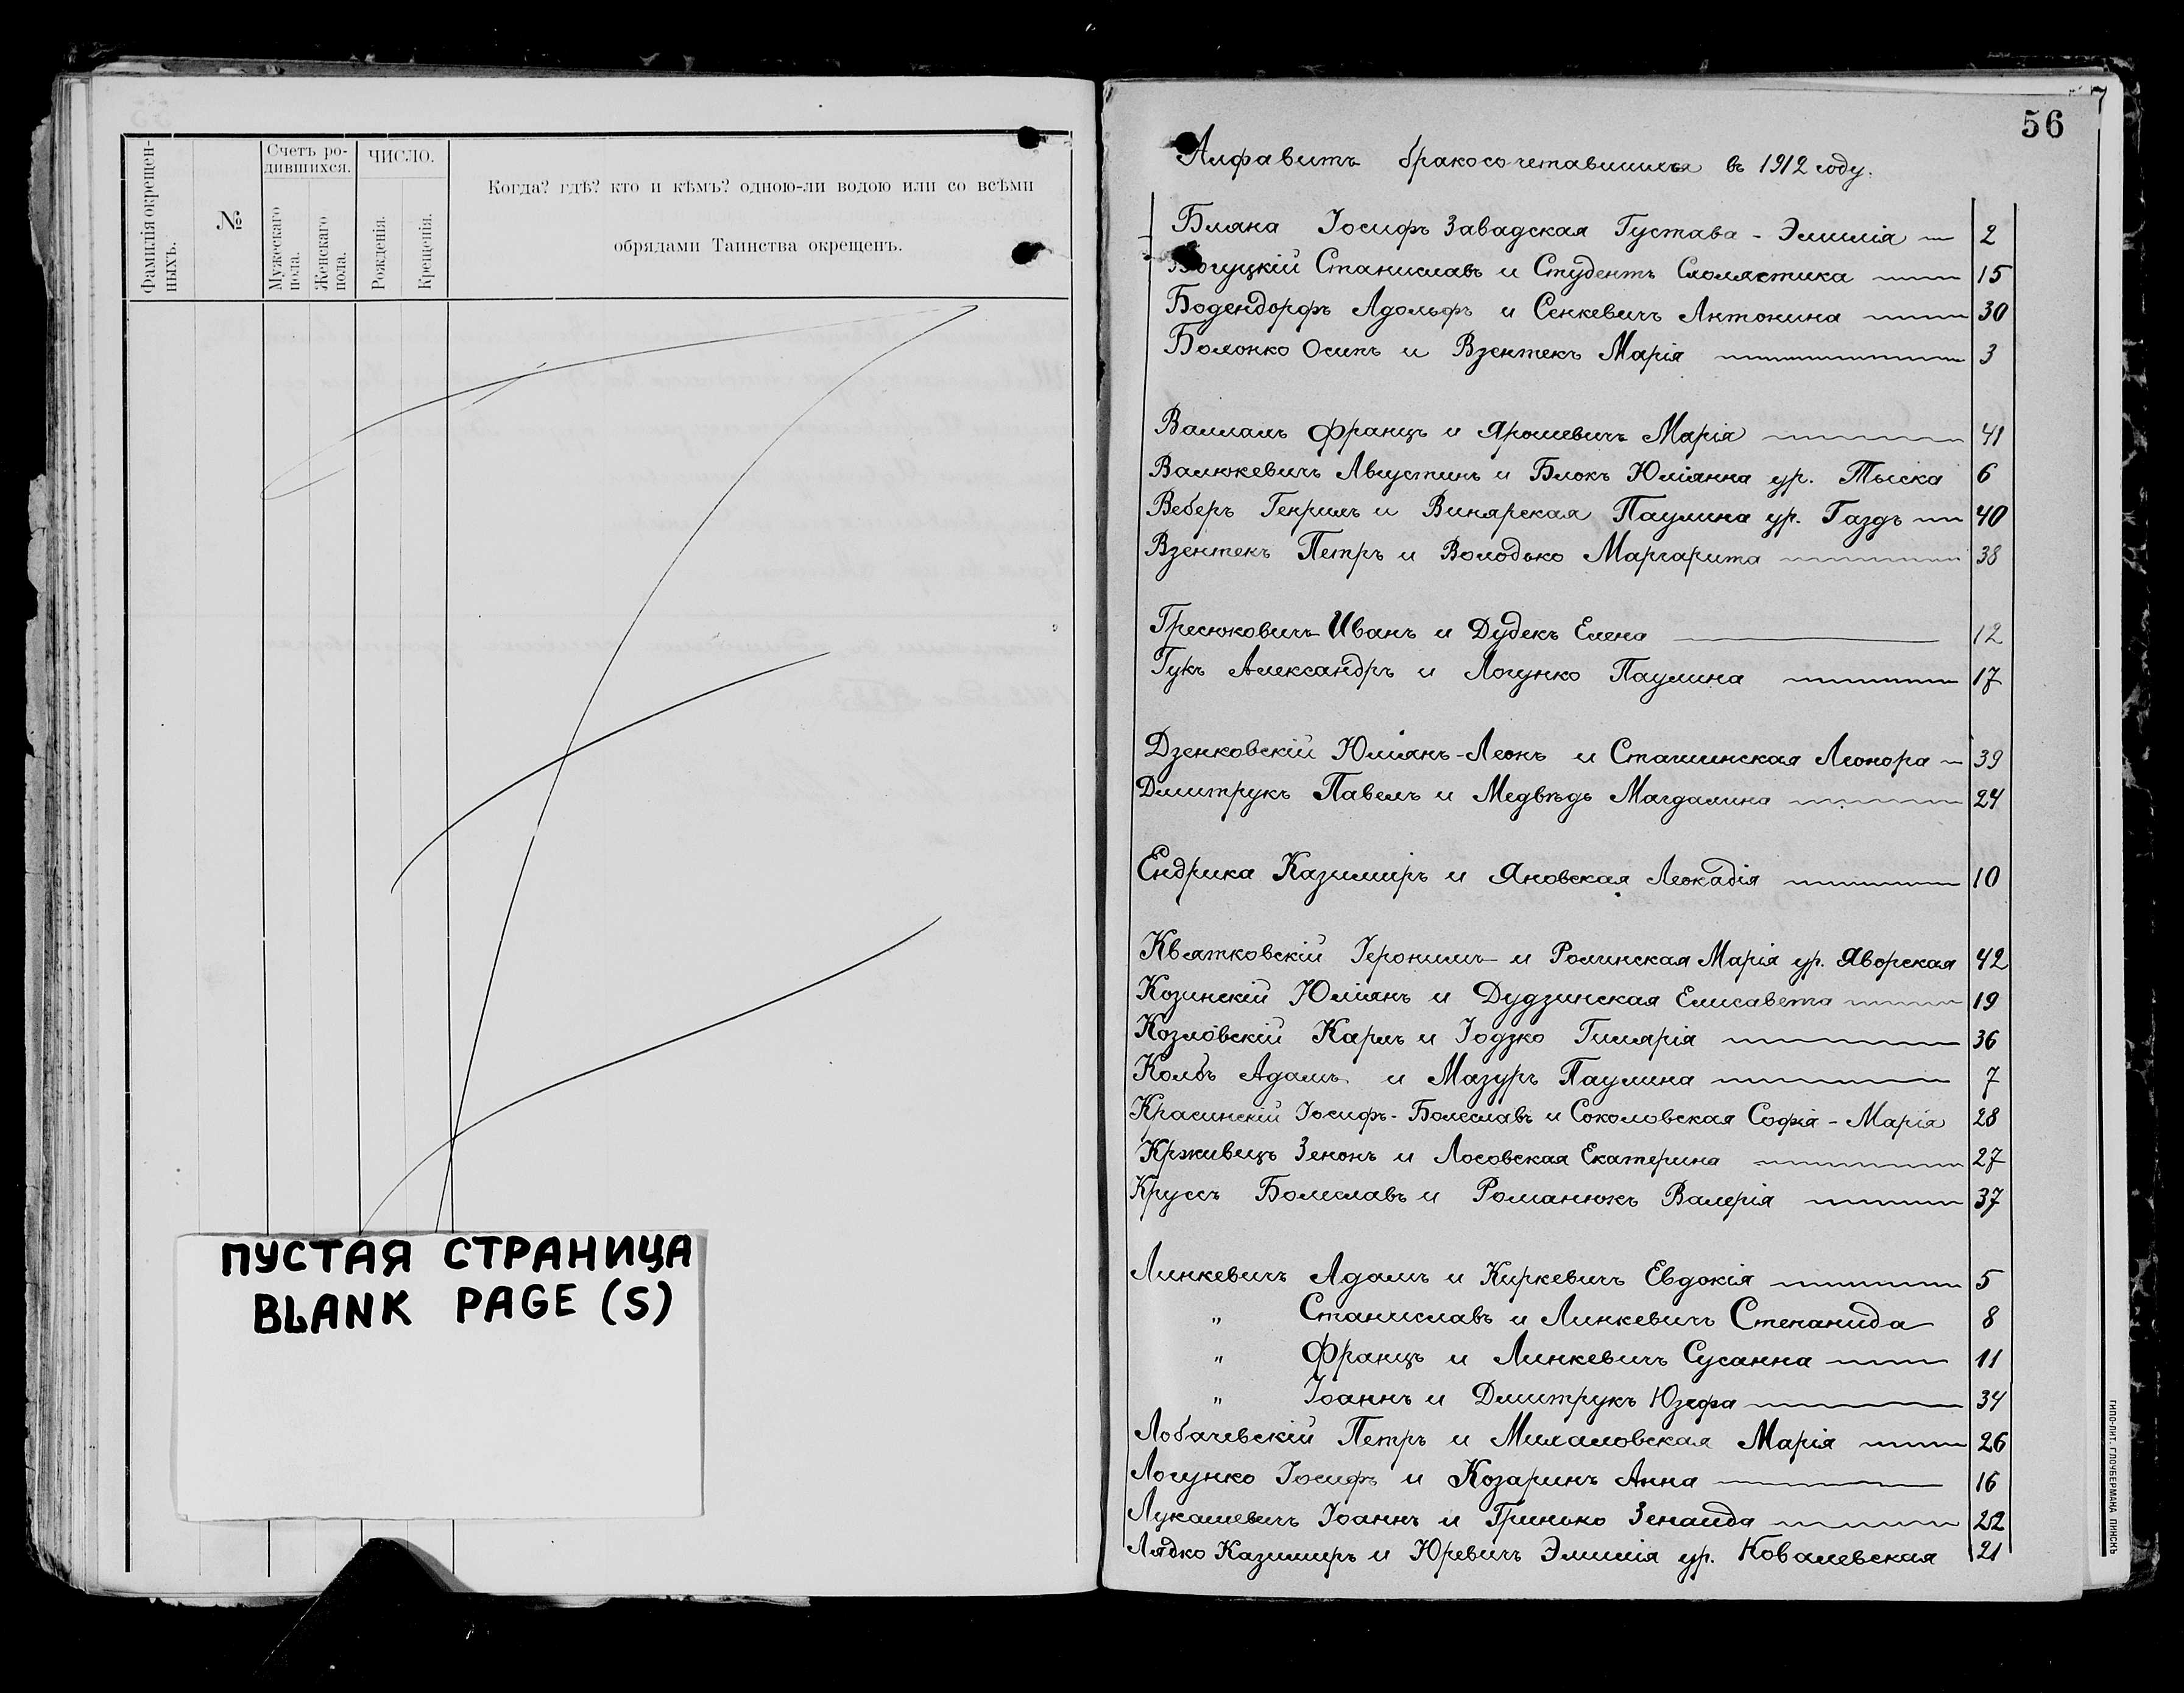 Фамилія окрещен-
ныхъ.
№
Счетъ ро-
дившихся.
Мужескаго
пола.
Женскаго
пола.
ЧИСЛО.
Рожденія.
Крещенія.
Когда? гдѣ? кто и кѣмъ? одною-ли водою или со всѣми
обрядами Таинства окрещенъ.
ПУСТАЯ СТРАНИЦА
BLANK PAGE (S)
56
Алфавитъ бракосочетавшихся въ 1912 году.
Бляха Іосифъ Завадская Густава - Эмилія 2
Богуцкій Станиславъ и Студентъ Схоластика 15
Бодендорфъ Адольфъ и Сенкевичъ Антонина 30
Болонко Осипъ и Взентекъ Марія 3
Валлахъ Францъ и Ярошевичъ Марія 41
Валюкевичъ Августинъ и Блокъ Юліанна ур. Тыска 6
Веберъ Генрихъ и Винярская Паулина ур. Газдъ 40
Взентекъ Петръ и Володько Маргарита 38
Гресюковичъ Иванъ и Дудекъ Елена 12
Гукъ Александръ и Логунко Паулина 17
Дзенковскій Юліянъ-Леонъ и Сташинская Леонора 39
Дмитрукъ Павелъ и Медвѣдь Магдалина 24
Ендрика Казимиръ и Яновская Леокадія 10
Квятковскій Іеронимъ и Ролинская Марія ур. Яворская 42
Козинскій Юліянъ и Дудзинская Елисавета 19
Козловскій Карлъ и Іодзко Гилярія 36
Колбъ Адамъ и Мазуръ Паулина 7
Красинскій Іосифъ-Болеславъ и Соколовская Софія - Марія 28
Крживецъ Зенонъ и Лосовская Екатерина 27
Круссъ Болеславъ и Романюкъ Валерія 37
Линкевичъ Адамъ и Киркевичъ Евдокія 5
" Станиславъ и Линкевичъ Степанида 8
" Францъ и Линкевичъ Сусанна 11
" Іоаннъ и Дмитрукъ Юзефа 34
Лобачевскій Петръ и Михаловская Марія 26
Логунко Іосифъ и Козаринъ Анна 16
Лукашевичъ Іоаннъ и Гринько Зенаида 22
Лядко Казимиръ и Юревичъ Эмилія ур. Ковалевская 21
ТИПО-ЛИТ. ГЛОУБЕРМАНА, ПИНСКЪ